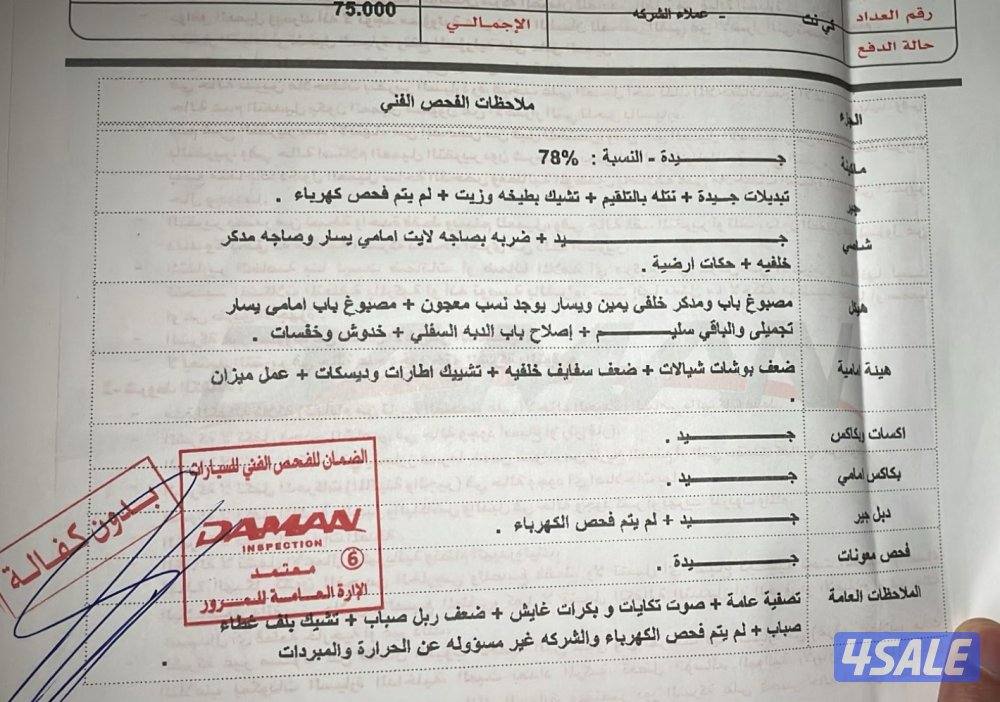 رقم العداد
كي نت - عملاء الشركه
الإجمالـــي
75.000
حالة الدفع
الجزء
ملاحظات الفحص الفني
ماكينة
جـــــــيدة - النسبة : 78%
جير
تبديلات جـــيدة + نتله بالتلقيم + تشيك بطيخه وزيت + لم يتم فحص كهرباء .
شاصي
جـــــــيد + ضربه بصاجه لايت امامي يسار وصاجه مدكر
خلفيه + حكات ارضية .
هيكل
مصبوغ باب ومدكر خلفى يمين ويسار يوجد نسب معجون + مصبوغ باب امامى يسار
تجميلى والباقي سليـــــم + إصلاح باب الدبه السفلي + خدوش وخفسات .
هيئة امامية
ضعف بوشات شيالات + ضعف سفايف خلفيه + تشييك اطارات وديسكات + عمل ميزان
.
اكسات وبكاكس
جـــــــيد .
بكاكس امامي
جـــــــيد .
دبل جير
جـــــــيد + لم يتم فحص الكهرباء .
فحص معونات
جـــــــيدة .
الملاحظات العامة
تصفية عامة + صوت تكايات و بكرات غايش + ضعف ربل صباب + تشيك بلف غطاء
صباب + لم يتم فحص الكهرباء والشركه غير مسؤوله عن الحرارة والمبردات .
بدون كفالة
الضمان للفحص الفني للسيارات
DAMAN
INSPECTION
6
معتمد
الإدارة العامة للمرور
4SALE